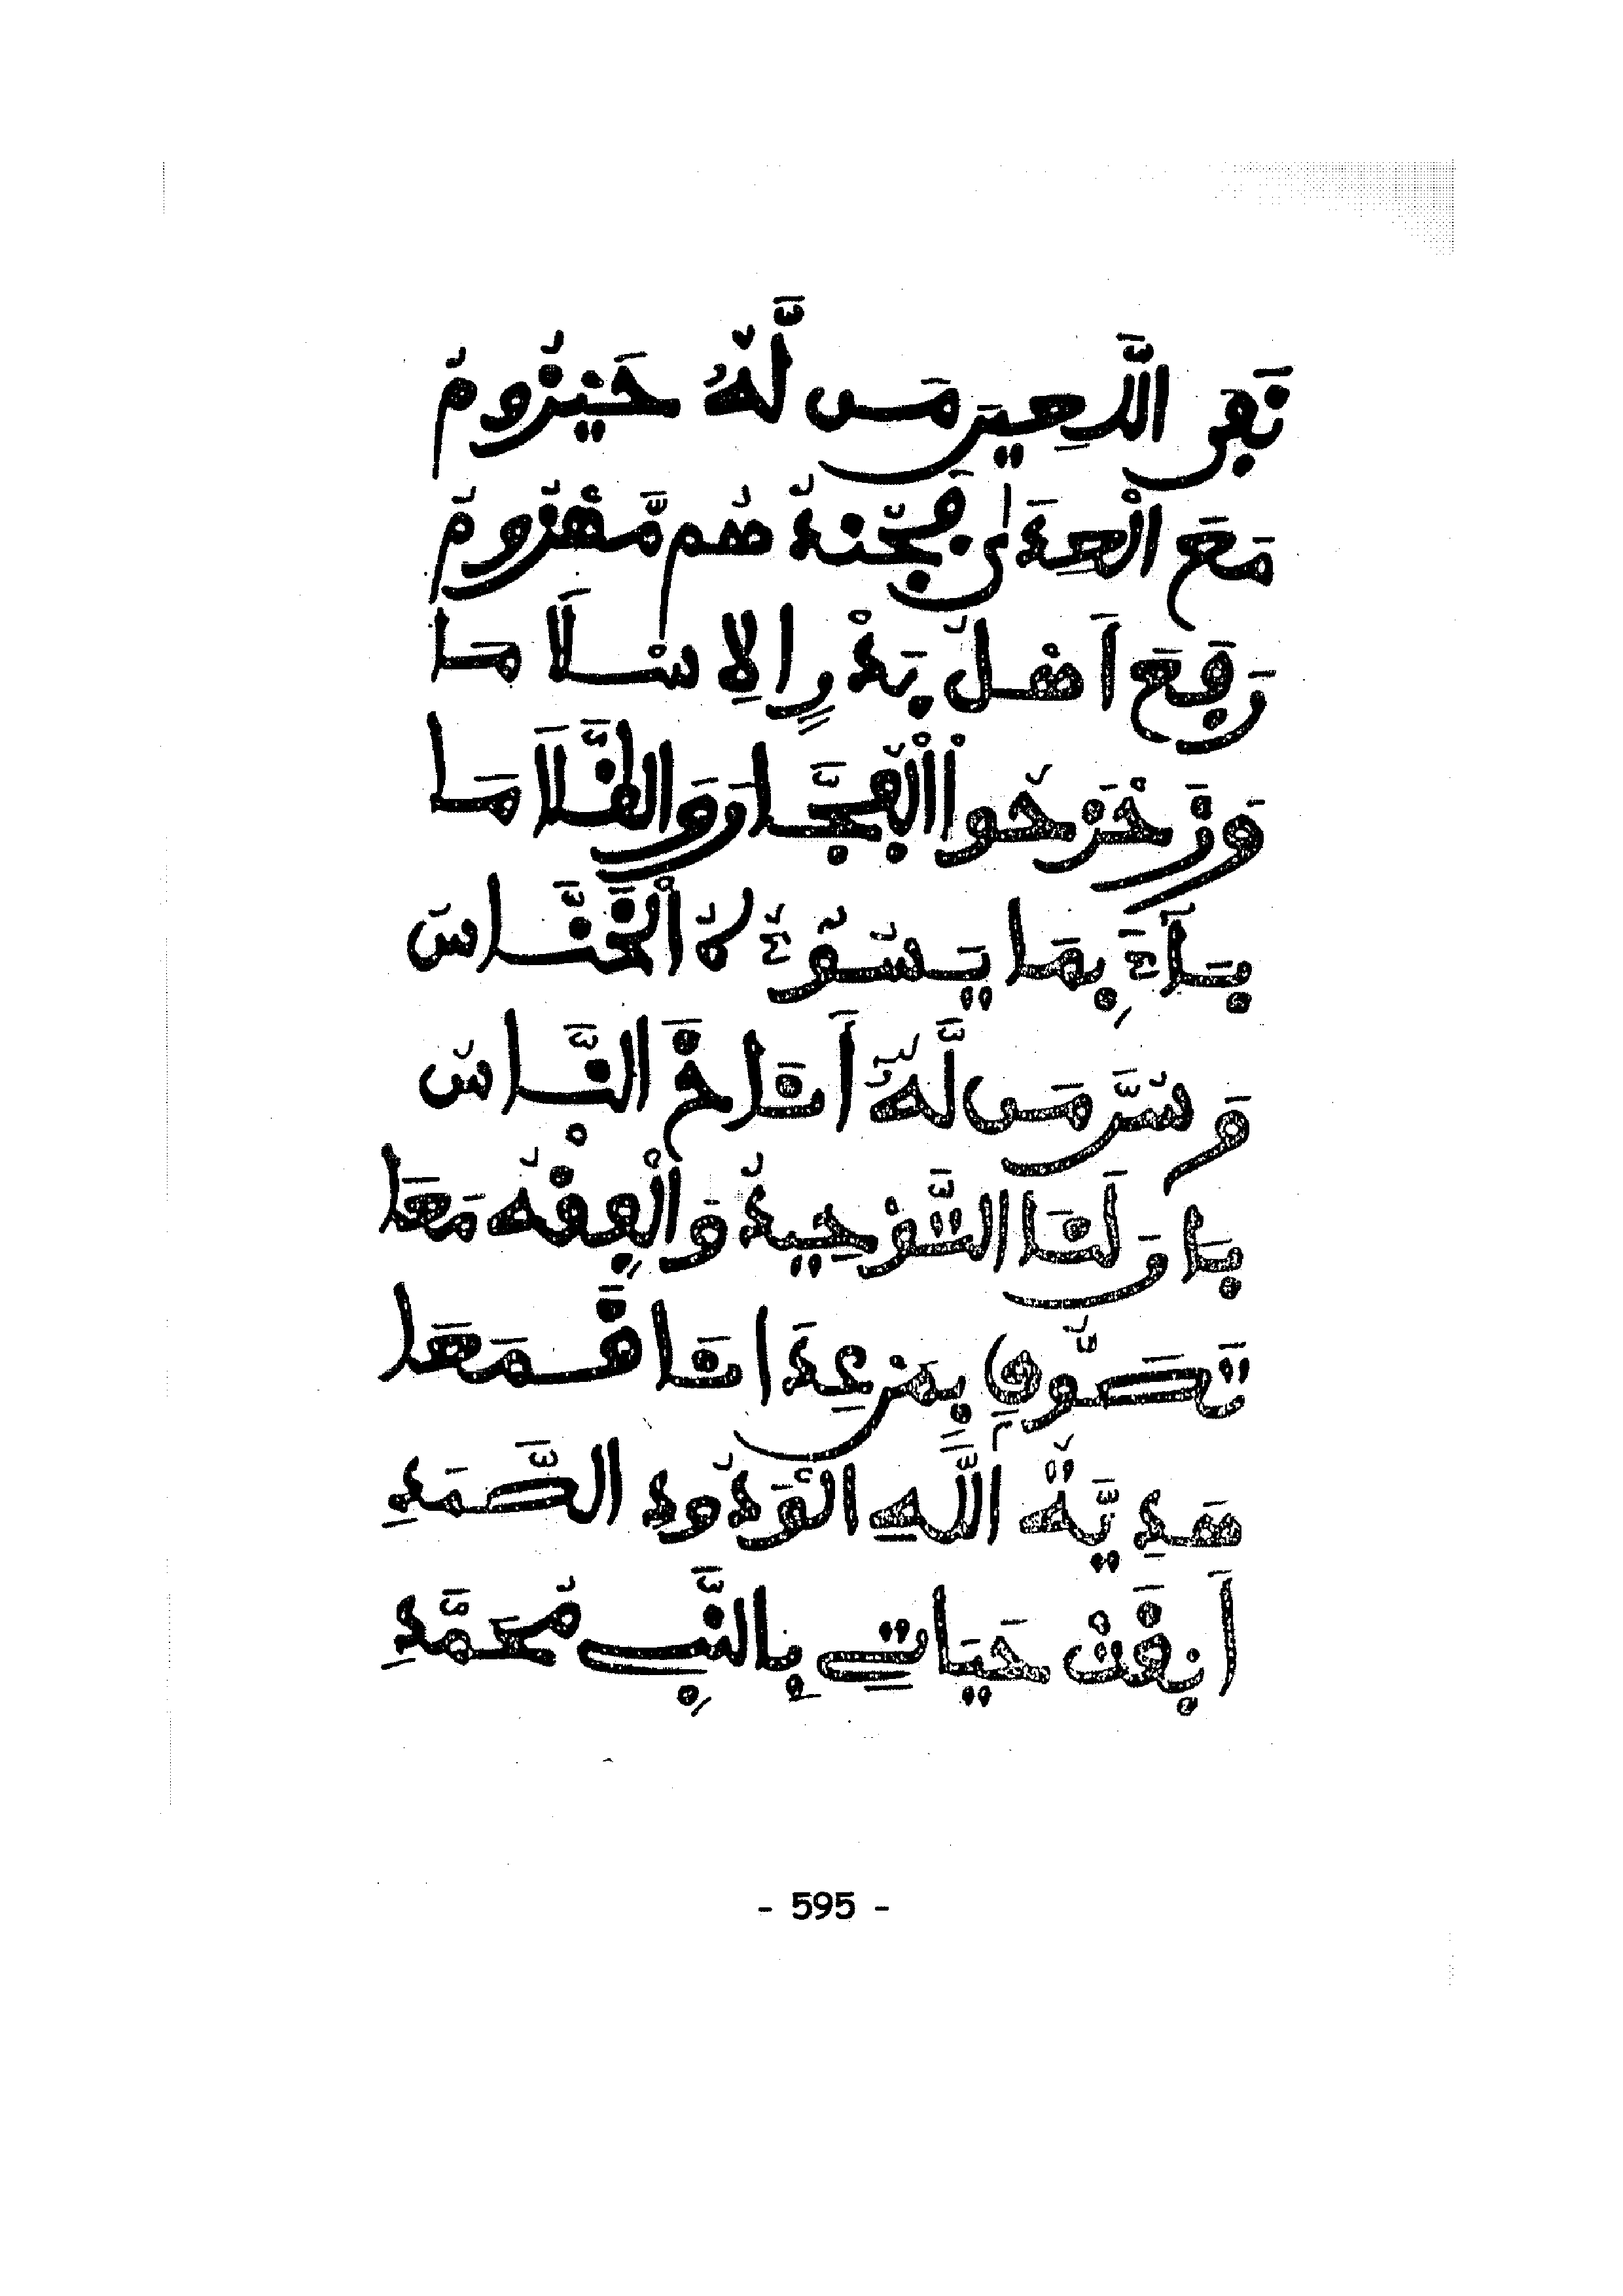 نَفَى اللَّعِينَ مَن لَّهُ حَيْزُومُ
مَعَ الْعِدَىٰ فَجُنْدُهُم مَّهْزُومُ
رَفَعَ أَهْلُ بَدْرٍ الِاسْلَامَا
وَزَحْزَحُوا الْفُجَّارَ وَالظَّلَامَا
بَآءَ بِمَا يَسُوءُهُ الْخَنَّاسُ
وَسُرَّ مَن لَّهُ أَنَاخَ النَّاسُ
بَاوَلَنَا التَّوْحِيدُ وَالْفِقْهُ مَعَا
تَصَوُّفٍ بِمَنْ عِدَانَا قَمَعَا
هَدِيَّةُ اللَّهِ الْوَدُودِ الصَّمَدِ
أَبْقَتْ حَيَاتِي بِالنَّبِي مُحَمَّدِ
- 595 -